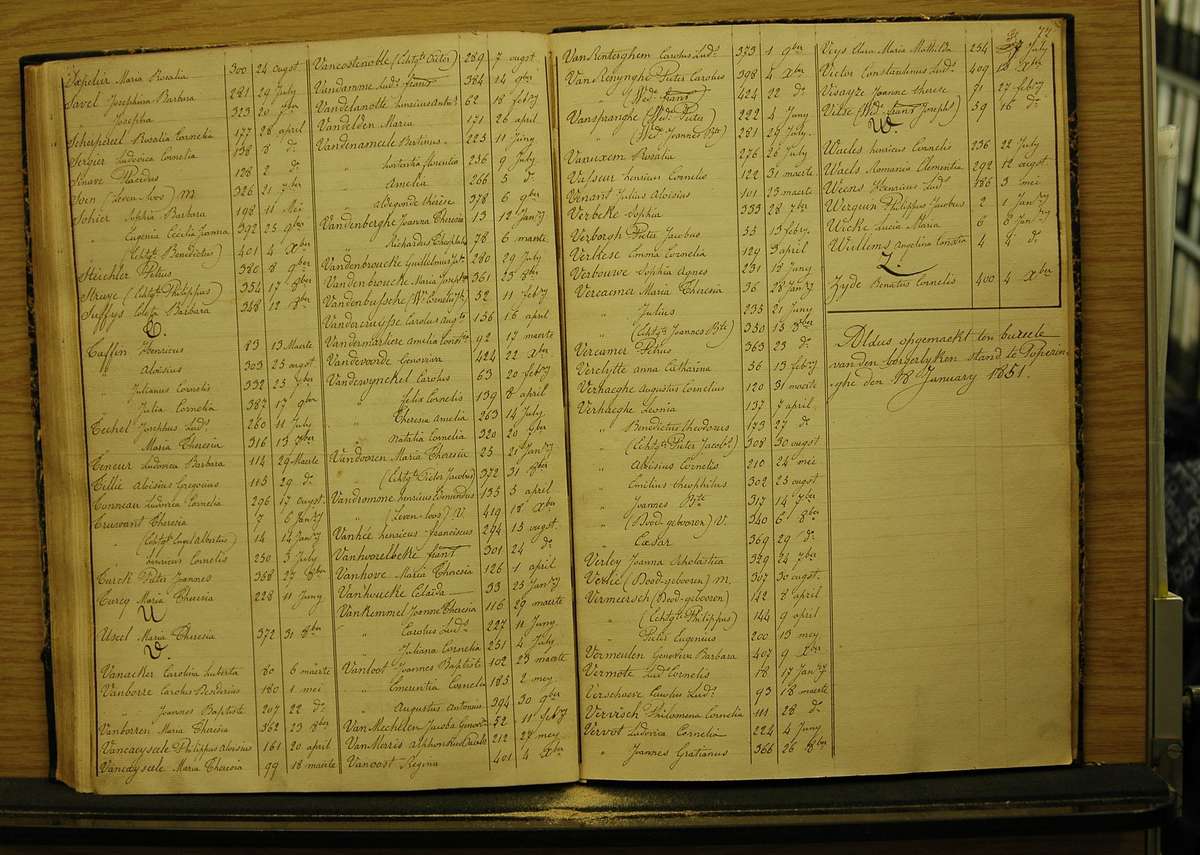 Maria Rosalia 300 24 augst
Savel Josephina Barbara 281 29 July
Josepha 323 20 7ber
Rosalia Cornelia 177 28 april
Sergier Ludovica Cornelia 138 8 do
Sinave Placidus 128 2 do
Sorn (Leven-loos) M. 326 21 7ber
Sohier Sophia Barbara 198 11 Mei
" Eugenia Cecilia Joanna 392 25 9ber
" (Echtgt Benedictus) 401 4 Xber
Steichler Petrus 380 8 9ber
Struye (Echtgt Philippus) 354 17 8ber
Suffys Coleta Barbara 348 12 8ber
T.
Taffin Henricus 83 13 Maerte
" Aloisius 303 25 augst
" Julianus Cornelis 332 25 7ber
" Julia Cornelia 387 17 9ber
Techel Josephus Luds 260 11 July
Maria Theresia 316 13 7ber
Teneur Ludovica Barbara 114 29 Maerte
Tillie Aloisius Gregorius 115 29 do
Tonneau Ludovica Cornelia 296 17 augst
Truwant Theresia 7 6 Janry
(Echtgt Engel Albertus) 14 14 Janry
" henricus Cornelis 250 3 July
Turck Pieter Joannes 368 27 8ber
Turcq Maria Theresia 228 11 Juny
U
Useel Maria Theresia 372 31 8ber
V.
Vanacker Carolina Huberta 80 6 maerte
Vanborre Carolus Desiderius 180 1 mei
" Joannes Baptiste 207 22 do
Vanborren Maria Theresia 362 23 8ber
Vancayseele Philippus Aloisius 161 20 april
Vancayseele Maria Theresia 99 18 maerte
Vancostenoble (Echtgt Victor) 289 7 augst
Vandamme Luds frans 384 14 9ber
Vandelanotte henricus Ants 62 18 febry
Vandelden Maria 171 26 april
Vandenameele Bertinus 225 11 Juny
" hortentia florentia 256 9 July
" Amelia 266 5 do
" aldegonde thérèse 378 6 9ber
Vandenberghe Joanna Theresia 13 12 Janry
Richardus Theophils 78 6 maerte
Vandenbroucke Guillielmus Jbs 280 29 July
Vandenbroucke Maria Josepha 361 23 8ber
Vandenbussche (We Cornelis Jh) 52 11 febry
Vandercruysse Carolus Augts 156 16 april
Vandermarliere amelia Constce 92 17 maerte
Vandevoorde Genoviva 424 22 Xber
Vandewynckel Carolus 63 20 febry
" Felix Cornelis 139 8 april
" Theresia Amelia 263 14 July
" Natalia Cornelia 320 20 7ber
Vandooren Maria Theresia 25 21 Janry
" (Echtgt Pieter Jacobus) 372 31 8ber
Vandromme henricus Edmundus 135 5 april
" (Leven-loos) V. 419 18 Xber
Vanhée henricus franciscus 294 15 augst
Vanhoorelbeke frans 301 24 do
Vanhove Maria Theresia 126 1 april
Vanhoucke Eelaida 33 25 Janry
Vankemmel Joanna Theresia 116 29 maerte
" Carolus Luds 227 11 Juny
" Juliana Cornelia 251 4 July
Vanloot Joannes Baptiste 102 23 maerte
" Emerentia Cornelia 185 2 mey
" Augustus Antonius 394 30 9ber
Van Mechelen Jacoba Genoviva 52 11 febry
Van Merris Alphonsus Cornelis 212 27 mey
Vanoost Regina 401 4 Xber
Van Renterghem Carolus Luds 373 1 9ber
Van Renynghe Pieter Carolus 398 4 Xber
" (Wedr frans) 424 22 do
Vanspranghe (Wedr Pieter) 222 4 Juny
" (Wedr Joannes Bte) 281 29 July
Vanuxem Rosalia 276 26 July
Vasseur henricus Cornelis 122 31 maerte
Venant Julius Aloisius 101 23 maerte
Verbeke Sophia 333 28 7ber
Verborgh Pieter Jacobus 55 13 febry
Verkese Emma Cornelia 129 3 april
Verbouwe Sophia Agnes 231 18 Juny
Vercaemer Maria Theresia 36 28 Janry
" Julius 235 21 Juny
" (Echtgt Joannes Bte) 350 15 8ber
Vercamer Petrus 363 23 do
Verclytte anna Catharina 56 13 febry
Verhaeghe Augustus Cornelius 120 31 maerte
Verhaeghe Leonia 137 7 april
" Benedictus theodorus 173 27 do
" (Echtgt Pieter Jacobs) 308 30 augst
" Aloisius Cornelis 210 24 mei
" Emilius theophilus 302 25 augst
" Joannes Bte 317 14 7ber
" (Dood-geboren) V. 340 6 8ber
" Cæsar 369 29 do
Verley Joanna Scholastica 329 24 7ber
Verlie (Dood-geboren) M. 307 30 augst
Vermeersch (Dood-geboren) 142 8 april
" (Echtgt Philippus) 144 9 april
" Pieter Eugenius 200 13 mey
Vermeulen Genoviva Barbara 407 9 Xber
Vermote Luds Cornelis 18 17 Janry
Verschaeve Carolus Luds 93 18 maerte
Vervisch Philomena Cornelia 111 28 do
Vervot Ludovica Cornelia 224 4 Juny
" Joannes Gratianus 366 26 8ber
77
Veys Clara Maria Mathilde 254 July
Victor Constantinus Luds 409 10 Xber
Visayze Joanne therese 71 27 febry
Vitse (Wedr frans Josephs) 59 16 do
W
Waels henricus Cornelis 236 22 July
Waels Romania Clementia 292 12 augst
Weens Henricus Luds 186 3 mei
Wergein Philippus Jacobus 2 1 Janry
Wicke Lucia Maria 6 6 Janry
Willems Angelina Constia 4 4 do
Z
Zyde Renatus Cornelis 400 4 Xber
Aldus opgemaekt ten bureele
van den borgerlyken stand te Poperin
ghe den 18 January 1851.